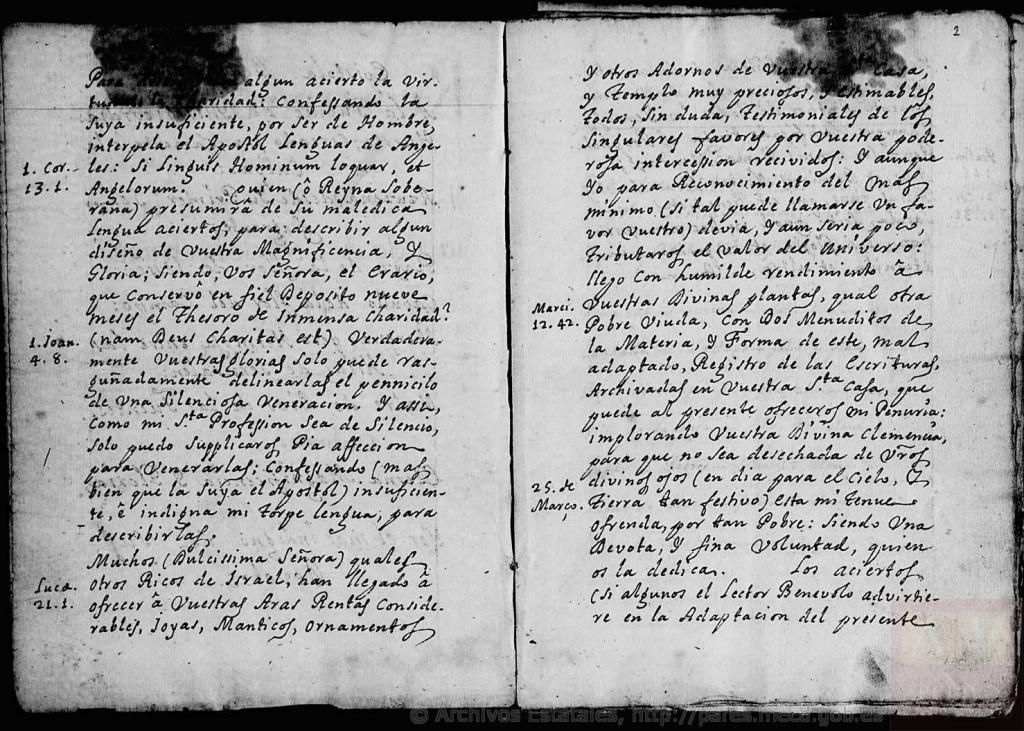 Para algun acierto la Vir-
tud de la Charidad: Confessando la
suya insuficiente, por ser de Hombre,
interpela el Apostol Lenguas de Ange-
les: Si Linguis Hominum loquar, et
1. Cor.
13. 1.
Angelorum. quien (ô Reyna Sobe-
rana) presumirâ de su maledica
lengua aciertos, para describir algun
diseño de Vuestra Magnificencia, Y
Gloria; Siendo, Vos Señora, el Erario,
que Conservô en fiel Deposito nueve
meses el Thesoro de Inmensa Charidad?
1. Joan.
4. 8.
(nam Deus Charitas est) Verdadera-
mente Vuestras glorias solo puede ras-
guñadamente delinearlas el pennicilo
de Vna Silenciosa Veneracion. Y assi,
Como mi S.ta Profession Sea de Silencio,
solo puedo Supplicaros Pia affeccion
para Venerarlas: Confessando (mas
bien que la Suya el Apostol) insuficien-
te, ê indigna mi torpe lengua, para
describirlas.
Muchos (Dulcissima Señora) quales
Lucæ.
21. 1.
otros Ricos de Israel, han llegado â
ofrecer â Vuestras Aras Rentas Conside-
rables, Joyas, Manticos, Ornamentos
2
Y otros Adornos de Vuestra Casa,
y Templo muy preciosos, Y estimables,
Todos, Sin duda, Testimoniales de los
Singulares favores por Vuestra pode-
rosa intercession recividos: Y aunque
Yo para Reconocimiento del mas
minimo (si tal puede llamarse Vn fa-
vor Vuestro) devia, Y aun seria poco,
Tributaros el Valor del Universo:
llego Con humilde rendimiento â
Marci.
12. 42.
Vuestras Divinas plantas, qual otra
Pobre Viuda, Con Dos Menuditos de
la Materia, Y Forma de este, mal
adaptado, Registro de las Escrituras,
Archivadas en Vuestra S.ta Casa, que
puede al presente ofreceros mi Penuria:
implorando Vuestra Divina Clemencia,
para que no Sea desechada de Vr̃os
25. de
Março.
divinos ojos (en dia para el Cielo, Y
Tierra tan festivo) Esta mi tenue
Ofrenda, por tan Pobre: Siendo Vna
Devota, Y fina Voluntad, quien
os la dedica. Los aciertos
(si algunos el Lector Benevolo advirtie-
re en la Adaptacion del presente
© Archivos Estatales, http://pares.mecd.gob.es